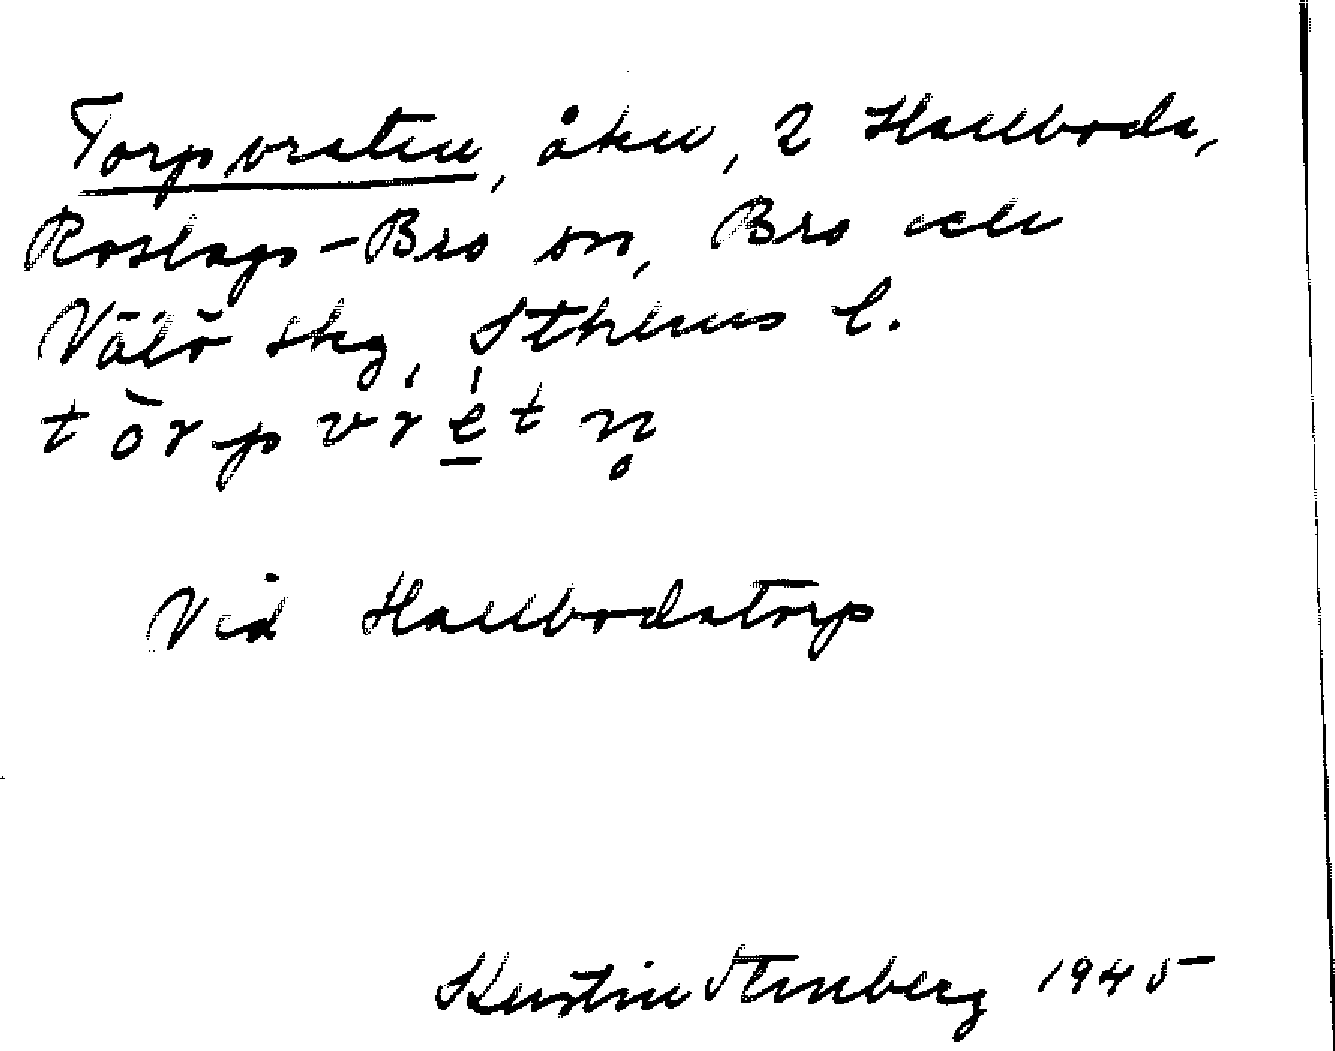 Torpvreten, åker, 2 Hallboda,
Roslags-Bro sn, Bro och
Vätö skg, Sthlms l.
tòrpvrétn̥
Vid Hallbodatorp
Kerstin Stenberg 1945